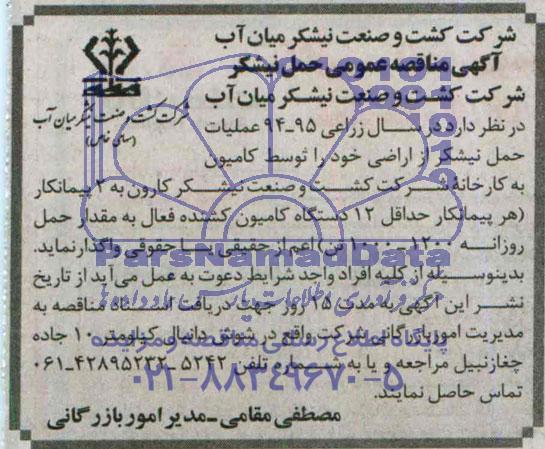 شرکت کشت و صنعت نیشکر میان آب
آگهی مناقصه عمومی حمل نیشکر
شرکت کشت و صنعت نیشکر میان آب
شرکت کشت و صنعت نیشکر میان آب
(سهامی خاص)
در نظر دارد در سال زراعی ۹۵-۹۴ عملیات
حمل نیشکر از اراضی خود را توسط کامیون
به کارخانه شرکت کشت و صنعت نیشکر کارون به ۲ پیمانکار
(هر پیمانکار حداقل ۱۲ دستگاه کامیون کشنده فعال به مقدار حمل
روزانه ۱۲۰۰-۱۰۰۰ تن) اعم از حقیقی یا حقوقی واگذار نماید.
بدینوسیله از کلیه افراد واجد شرایط دعوت به عمل می‌آید از تاریخ
نشر این آگهی به مدت ۲۵ روز جهت دریافت اسناد مناقصه به
مدیریت امور بازرگانی شرکت واقع در شوش دانیال کیلومتر ۱۰ جاده
چغازنبیل مراجعه و یا به شماره تلفن ۵۲۴۲-۴۲۸۹۵۲۳۲-۰۶۱
تماس حاصل نمایند.
مصطفی مقامی-مدیر امور بازرگانی
ParsNamadData
۰۲۱-۸۸۳۴۹۶۷۰-۵